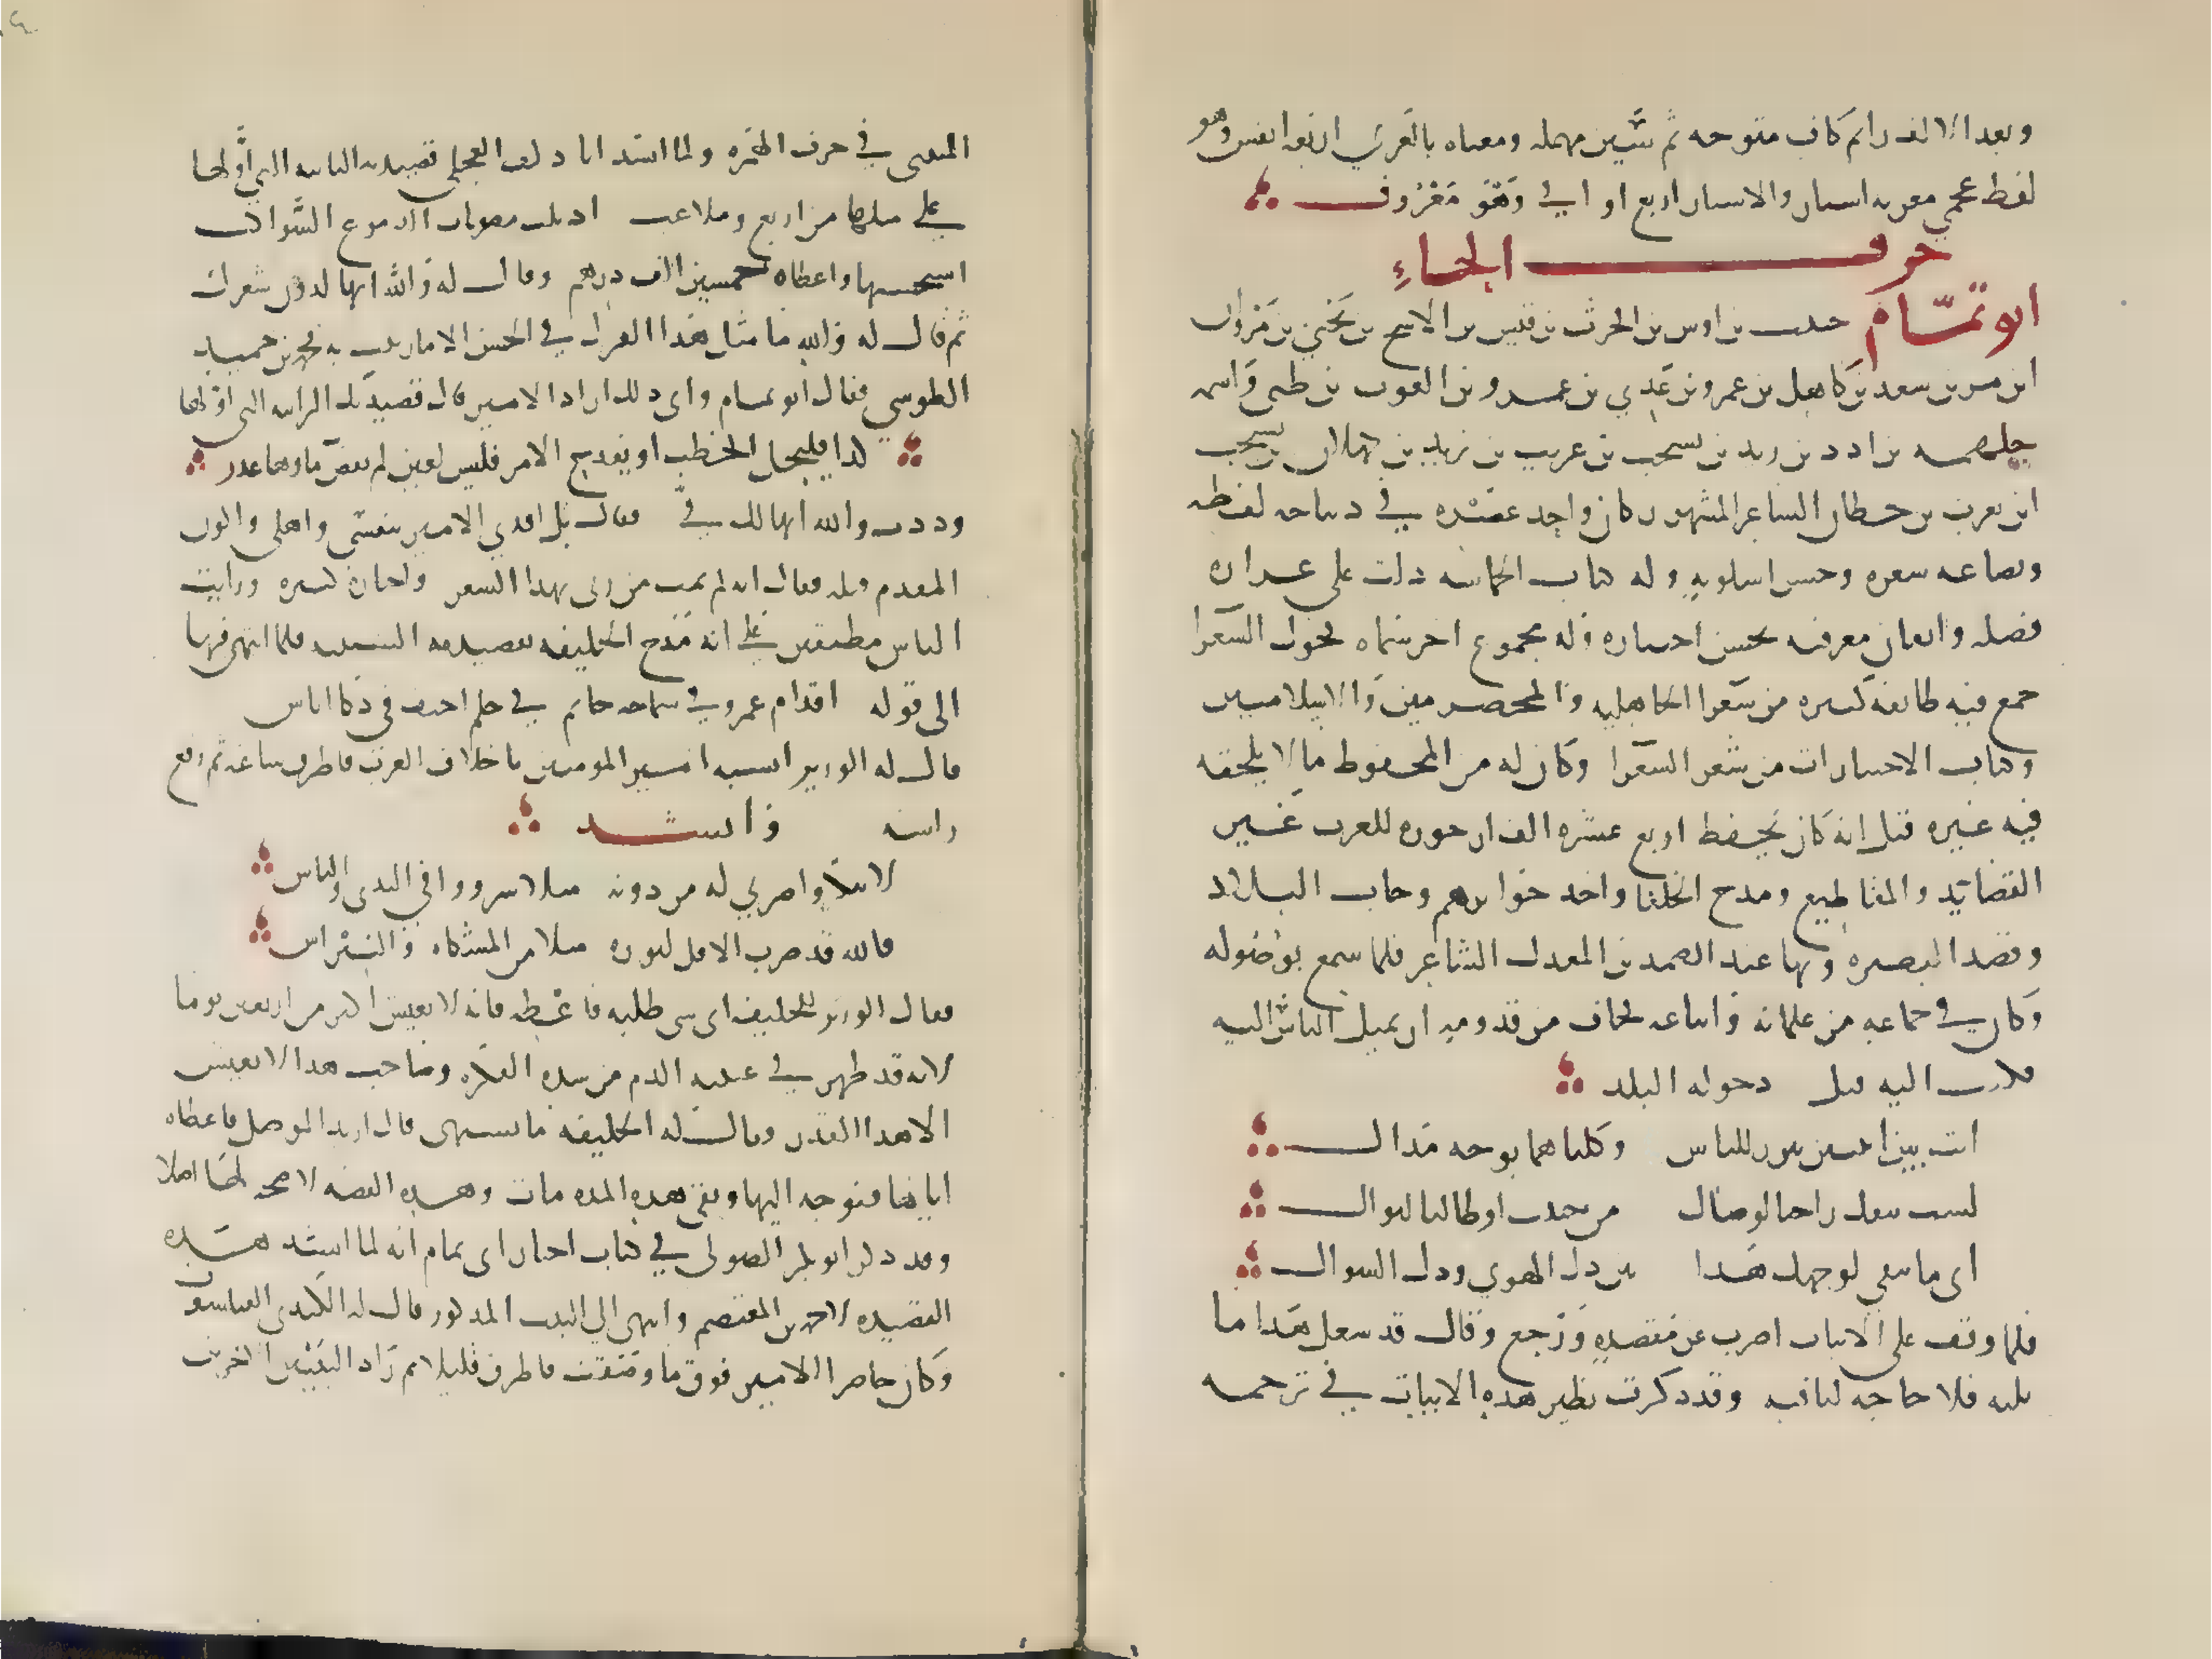 وبعد الالف راثم كاف مفتوحه ثم سين مهمله ومعناه بالعربي اربعه انفس وهو
لفظ عجمي معربه استار والاستار اربع اواقي وهو معروف
حرف الحاء
ابو تمام حبيب بن اوس بن الحرث بن قيس بن الاشج بن يحيي بن مروان
ابن مر بن سعد بن كاهل بن عمرو بن عدي بن عمرو بن الغوث بن طي واسمه
جلهمه بن ادد بن زيد بن يشجب بن عريب بن زيد بن كهلان بن يشجب
ابن يعرب بن قحطان الشاعر المشهور كان واحد عصره في ديباجه لفظه
وبضاعه شعره وحسن اسلوبه وله كتاب الحماسه دلت على غزاره
فضله واتقان معرفته بحسن اختياره وله مجموع اخر سماه فحول الشعرا
جمع فيه طائفه كثيره من شعرا الجاهليه والمخضرمين والاسلاميين
وكتاب الاختيارات من شعر الشعرا وكان له من المحفوظ ما لا يلحقه
فيه غيره قيل انه كان يحفظ اربع عشره الف ارجوزه للعرب غير
القصايد والمقاطيع ومدح الخلفا واخذ جوايزهم وجاب البلاد
وقصد البصره وبها عبد الصمد بن المعدل الشاعر فلما سمع بوصوله
وكان في جماعه من غلمانه واتباعه فخاف من قدومه ان يميل الناس اليه
فكتب اليه قبل دخوله البلد
انت بين اثنتين تبرز للناس وكلتاهما بوجه مذال
لست تنفك راجيا لوصال من حبيب او طالبا لنوال
اي ما يبقي لوجهك هذا بين ذل الهوي وذل السوال
فلما وقف علي الابيات اضرب عن مقصده ورجع وقال قد شغل هذا ما
يليه فلا حاجه لنا فيه وقد ذكرت نظير هذه الابيات في ترجمه
المتنبي في حرف الهمزه ولما انشد ابا دلف العجلي قصيدته البائيه التي اولها
على مثلها من اربع وملاعب اذيلت مصونات الدموع السواكب
استحسنها واعطاه خمسين الف درهم وقال له والله انها لدون شعرك
ثم قال له والله ما مثل هذا القول في الحسن الا ما رثيت به محمد بن حميد
الطوسي فقال ابو تمام واي ذلك اراد الامير قال قصيدتك الرائيه التي اولها
كذا فليجل الخطب او يفدح الامر فليس لعين لم يفض ماوها عذر
وددت والله انها لك في فقال بل افدي الامير بنفسي واهلي واكون
المقدم قبله فقال انه لم يمت من رثي بهذا الشعر واخباره كثيره ورايت
الناس مطبقين على انه مدح الخليفه بقصيده السينيه فلما انتهي فيها
الى قوله اقدام عمرو في سماحه حاتم في حلم احنف في ذكا اياس
قال له الوزير اتشبه امير المومنين باجلاف العرب فاطرق ساعه ثم رفع
راسه وانشد
لا تنكروا ضربي له من دونه مثلا شرودا في الندي والباس
فالله قد ضرب الاقل لنوره مثلا من المشكاه والنبراس
فقال الوزير للخليفه اي شي طلبه فاعطه فانه لا يعيش اكثر من اربعين يوما
لانه قد ظهر في عينيه الدم من شده الفكره وصاحب هذا لا يعيش
الا هذا القدر وقال له الخليفه ما تشتهي قال اريد الموصل فاعطاه
اياها فتوجه اليها وبقي هذه المده مات وهذه القصه لا صحه لها اصلا
وقد ذكر ابو بكر الصولي في كتاب اخبار ابي تمام انه لما انشد هذه
القصيده لاحمد بن المعتصم وانتهي الي البيت المذكور قال له الكندي الفيلسوف
وكان حاضرا الامير فوق ما وصفت فاطرق قليلا ثم زاد البيتين الاخرين